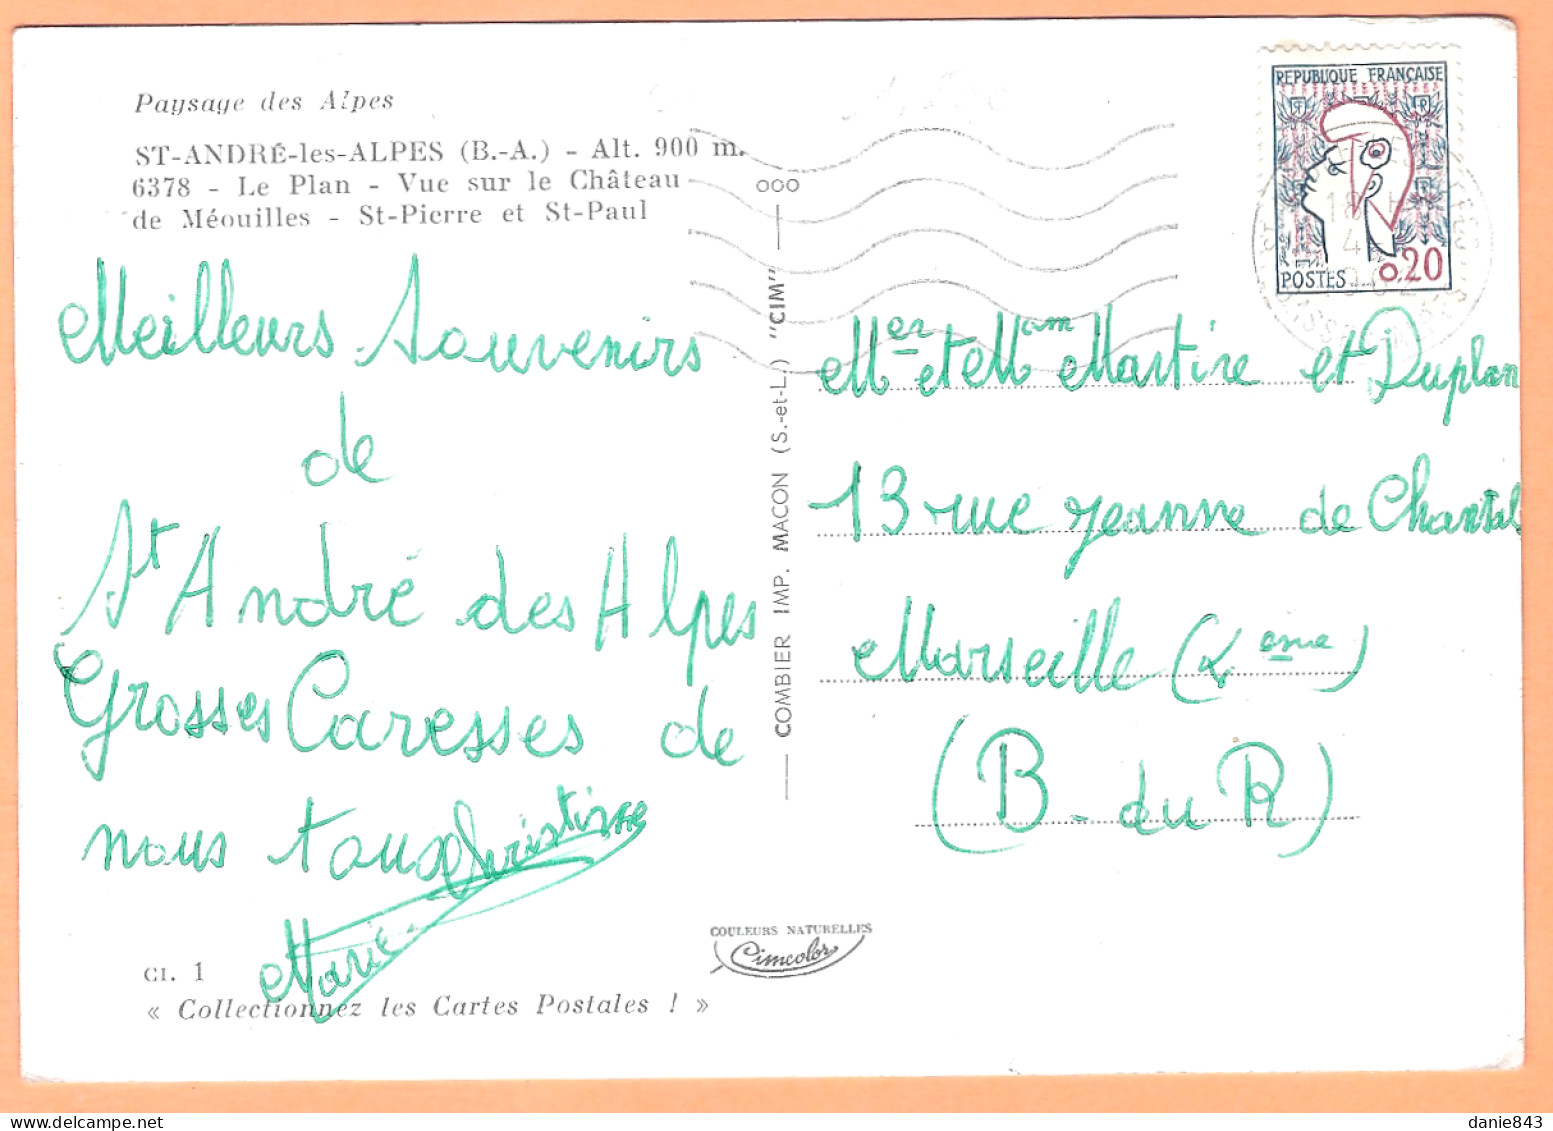 Paysage des Alpes
ST-ANDRÉ-les-ALPES (B.-A.) - Alt. 900 m.
6378 - Le Plan - Vue sur le Château
de Méouilles - St-Pierre et St-Paul
Meilleurs Souvenirs
de
St André des Alpes
Grosses Caresses de
nous tous
Christine
Marie
CI. 1
« Collectionnez les Cartes Postales ! »
COMBIER IMP. MACON (S.-et-L.) "CIM"
COULEURS NATURELLES
Cimcolor
REPUBLIQUE FRANÇAISE
POSTES 0.20
18 H
Mer et Mam Martine et Duplan
13 rue Jeanne de Chantal
Marseille (4eme)
(B-du R)
danie843